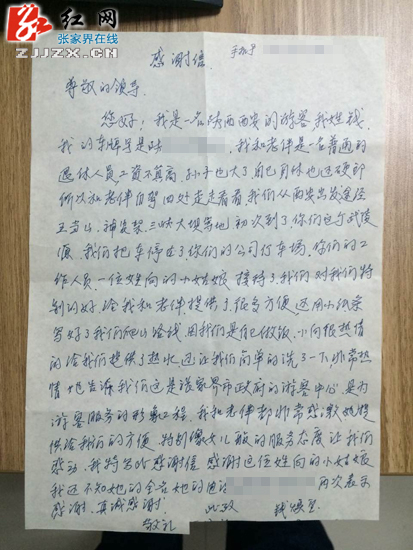 红网
张家界在线
ZJJZX.CN
感谢信
手机号
尊敬的领导.
您好: 我是一名陕西西安的游客, 我姓钱.
我的车牌号是陕 我和老伴是一名普通的
退休人员, 工资不算高, 孙子也大了, 自己身体也还硬朗
所以和老伴自驾四处走走看看, 我们从西安出发途径
武当山、神农架、三峡大坝等地, 初次到了你们这个武陵
源, 我们把车停在了你们的公司停车场. 你们的工
作人员一位姓向的小姑娘接待了我们, 对我们特
别的好, 给我和老伴提供了很多方便, 还用小纸条
写好了我们爬山路线, 因我们是自己做饭, 小向很热情
的给我们提供了热水, 还让我们简单的洗了一下, 非常热
情, 她告诉我们这是张家界市政府的游客中心, 是为
游客服务的形象工程, 我和老伴都非常感激她提
供给我们的方便, 特别像女儿般的服务态度让我们
感动, 我特写此感谢信, 感谢这位姓向的小姑娘
我还不知她的全名, 她的电话 再次表示
感谢、真诚感谢!
此致
敬礼
钱